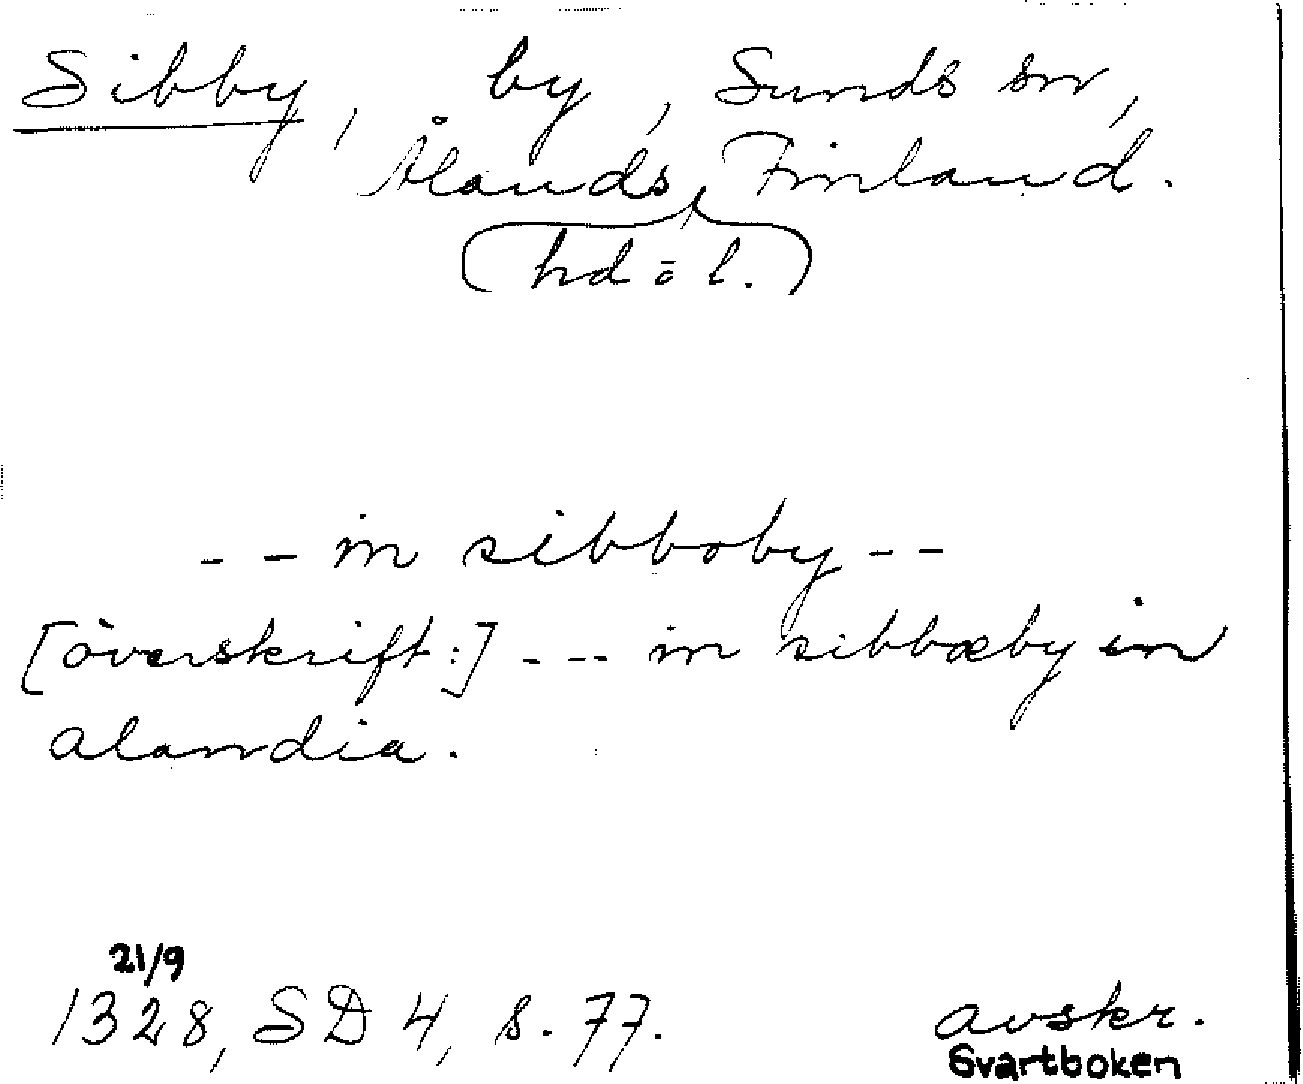 Sibby, by, Sunds sn,
Ålands, Finland.
(hd o l.)
-- in sibboby --
[överskrift:] --- in sibbæby in
alandia.
21/9
1328, SD 4, s. 77. avskr.
Svartboken